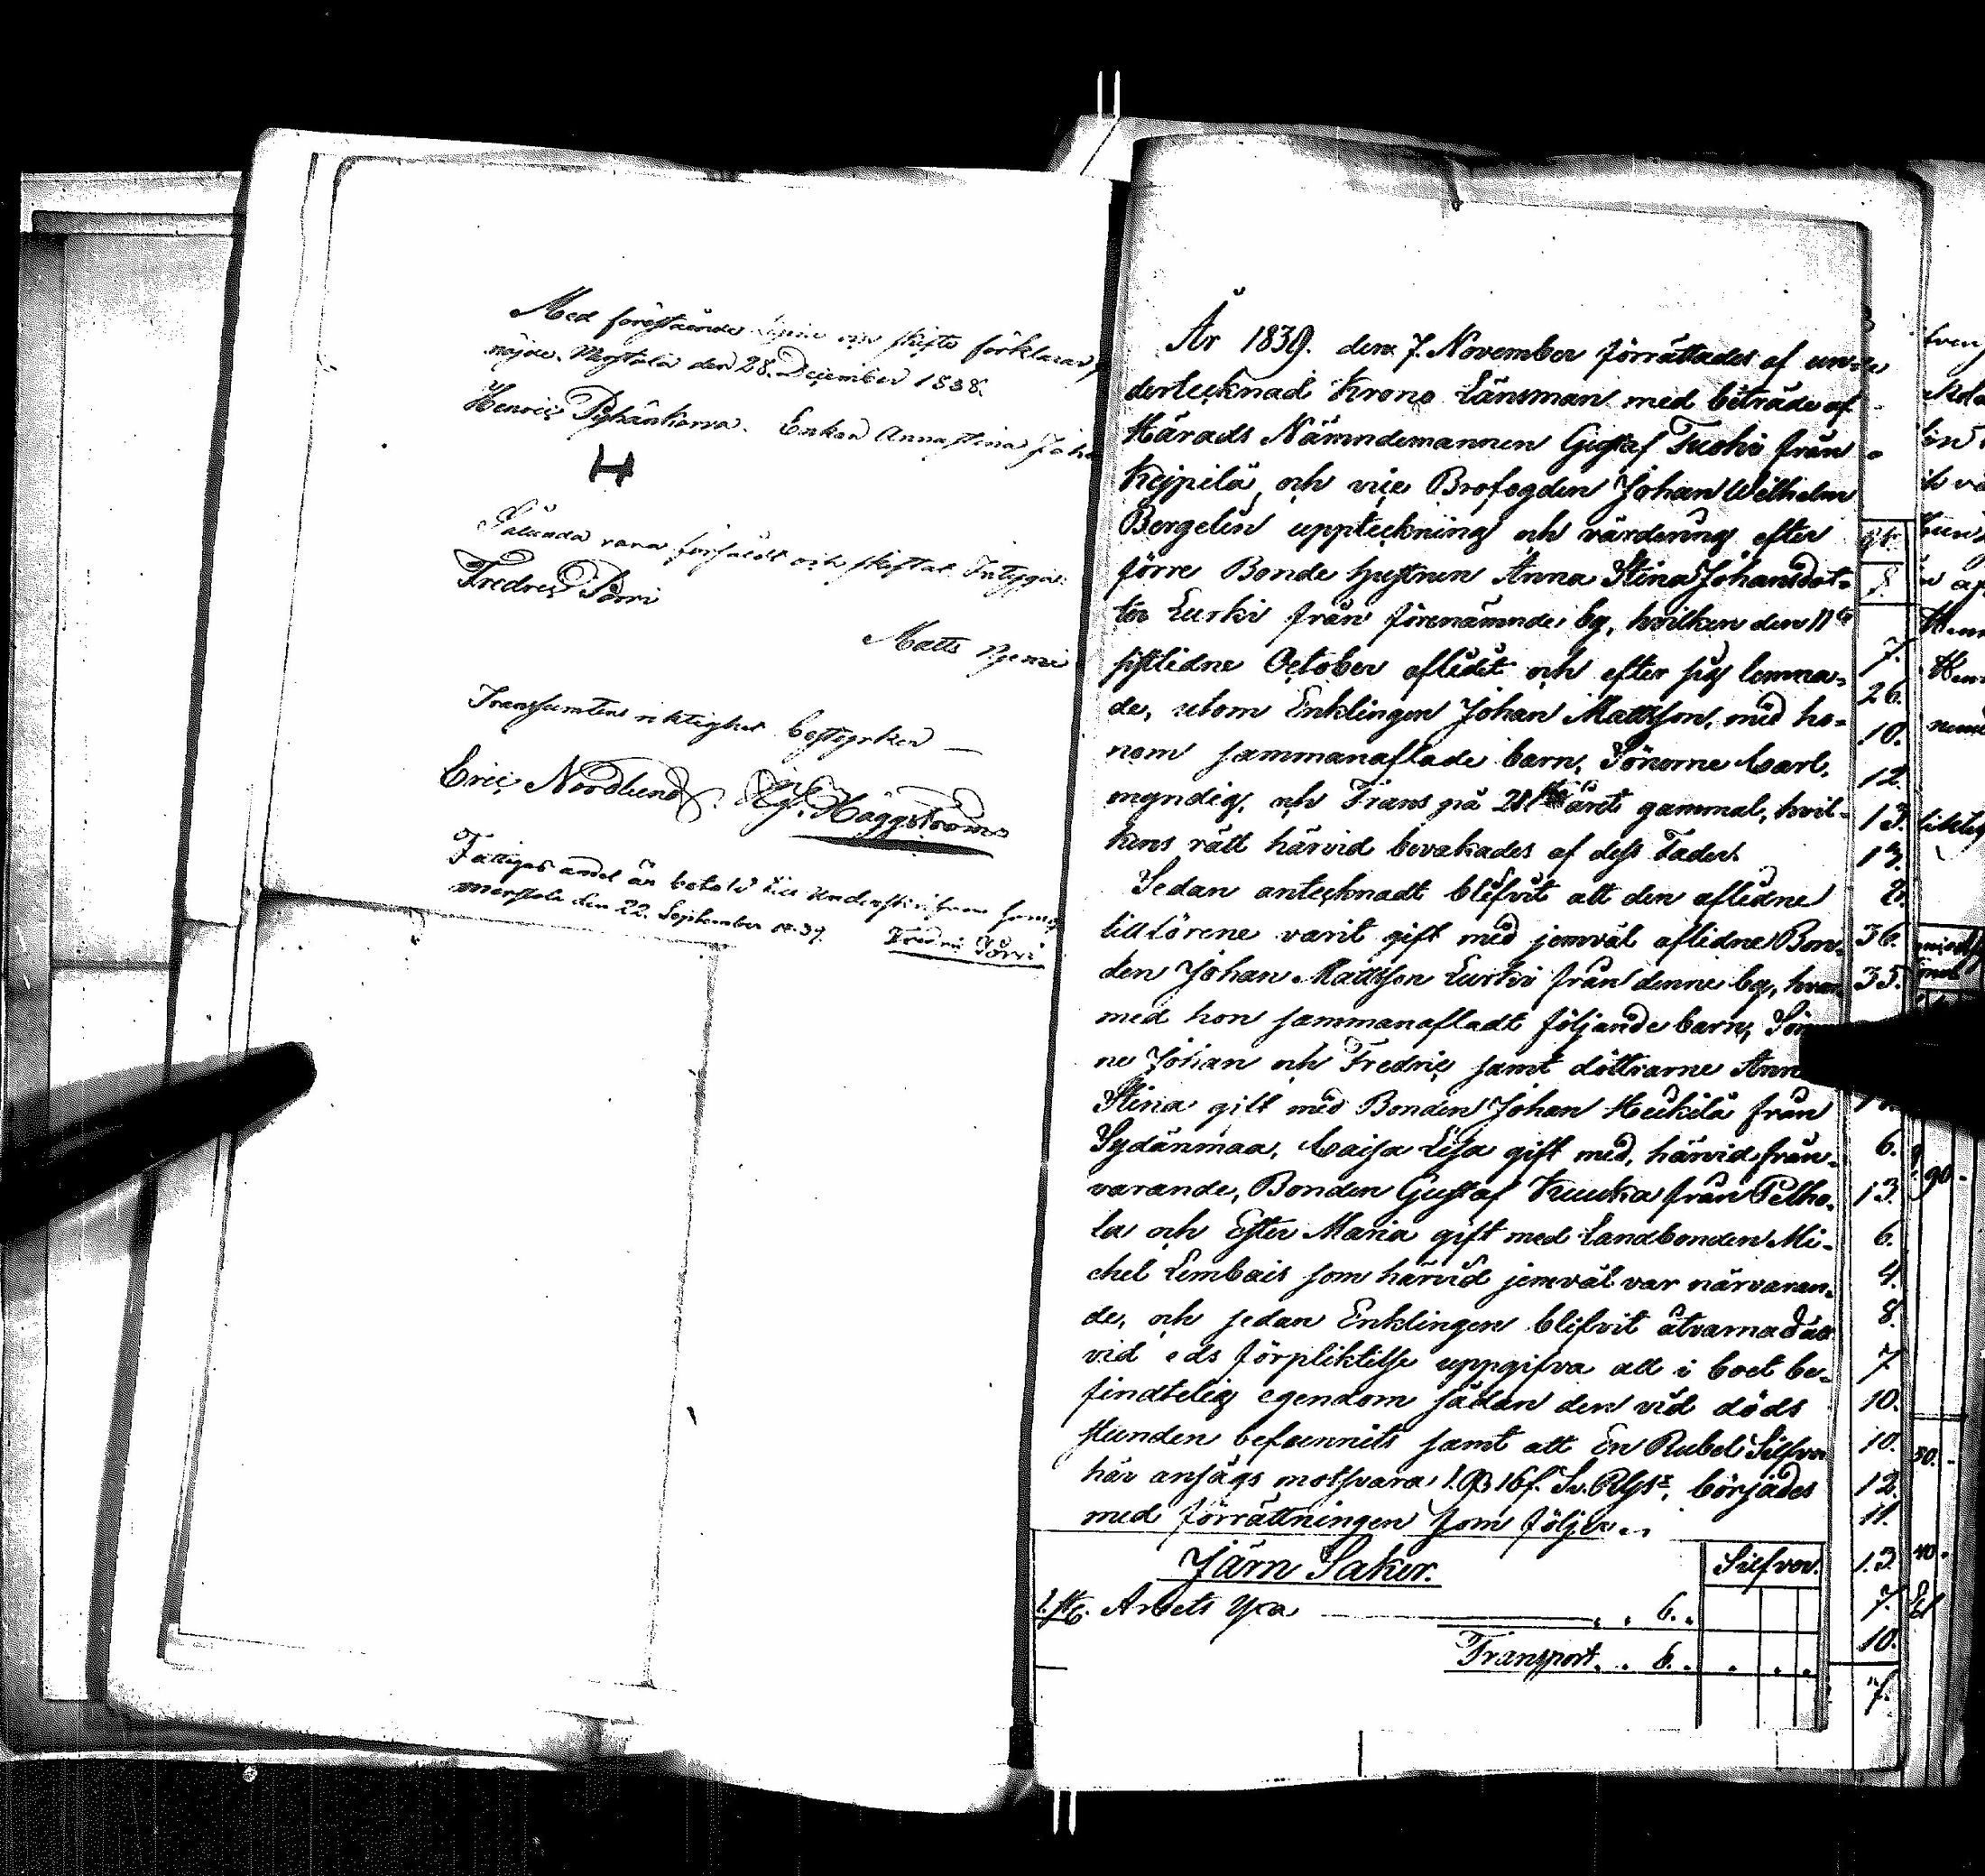 Med förestående och skifte förklarar
nöjde. Merstola den 28. December 1838.
Henric Pyhänkorva. Enkan Annastina Joha
H
Sålunda vara försåldt och skiftat Intyga:
Fredric Sorri
Matts Nyemi
Transumtens riktighet bestyrker —
Eric Nordlund. Häggström
Fattiges andel är betald till underskrifven
Merstola den 22. September 1839. Fredric Sorri
År 1839. den 7. November förrättades af un-
dertecknad Krono Länsman med biträde af
Härads Nämndemannen Gustaf Tuohi från
Keipilä, och vice Brofogden Johan Wilhelm
Bergelin uppteckning och värdering efter
förre Bonde hustrun Anna Stina Johansdot-
ter Lurki från förenämnde by, hvilken den 11te
sistlidne October aflidit och efter sig lemna-
de, utom Enklingen Johan Mattsson, med ho-
nom sammanaflade barn, Sönerne Carl,
myndig, och Frans på 21 året gammal, hvil-
kens rätt härvid bevakades af dess Fader.
Sedan antecknadt blifvit att den aflidne
tillförene varit gift med jemväl aflidne Bon-
den Johan Mattsson Lurki från denne by, hvar-
med hon sammanafladt följande barn, Söner
ne Johan och Fredric samt döttrarne Anna
Stina gift med Bonden Johan Heikilä från
Sydänmaa, Caisa Lisa gift med, härvid från-
varande, Bonden Gustaf Kuuka från Pelho-
la och Ester Maria gift med Landbonden Mi-
chel Lembais som härvid jemväl var närvaran-
de, och sedan Enklingen blifvit åtvarnad att
vid eds förpliktelse uppgifva all i boet be-
findtelig egendom sådan den vid döds
stunden befunnits samt att En Rubel Silfver
här ansågs motsvara 1. Rß 16 s. Sv. Rgs, började
med förrättningen som följer.
Järn Saker. Silfver.
1. st. Arbets yxa 6.
Transport. 6.
7.
26.
10.
12.
13.
13.
8.
36.
35.
6.
13.
6.
4.
8.
7
10.
10.
12.
11.
13.
7.
10.
7.
90.
50.
40.